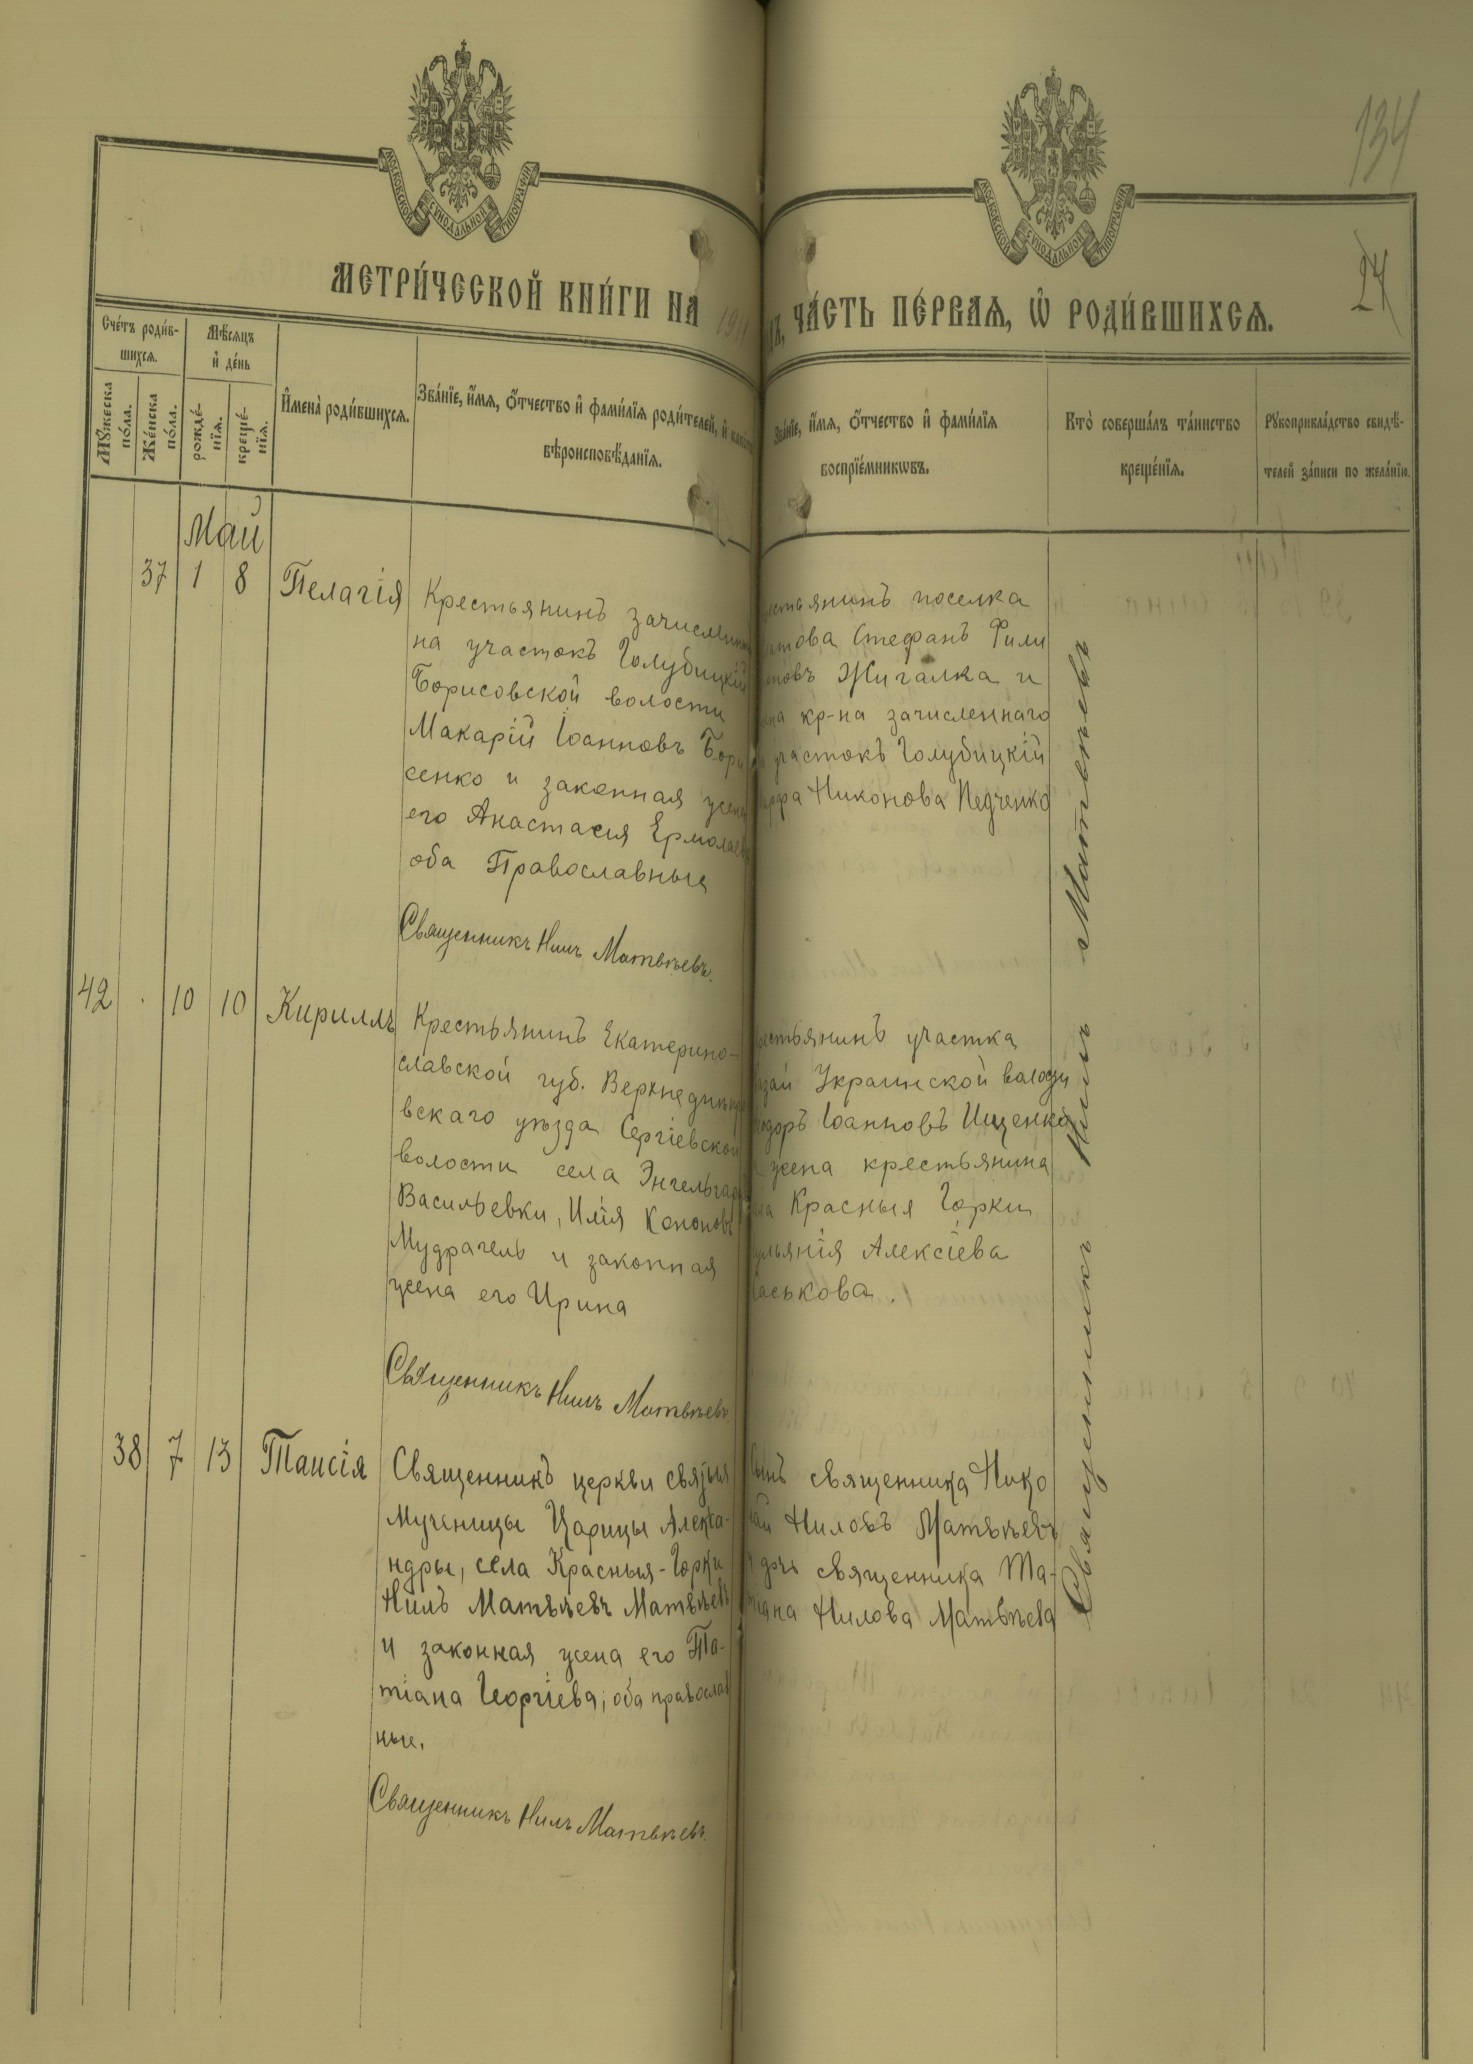 134
МОСКОВСКОЙ СУНОДАЛЬНОЙ ТИПОГРАФІИ
МОСКОВСКОЙ СУНОДАЛЬНОЙ ТИПОГРАФІИ
24
МЕТРИ́ЧЕСКОЙ КНИ́ГИ НА 1911
ЧА́СТЬ ПЕ́РВАЯ, Ѡ РОДИ́ВШИХСЯ.
Сче́тъ роди́в-
шихся.
Мѣ́сяцъ
и҆ де́нь
Мꙋ́жеска
по́ла.
Же́нска
по́ла.
рожде́-
нїя.
креще́-
нїя.
И҆мена̀ роди́вшихся.
Зва́нїе, и҆́мя, ѻ҆́тчество и҆ фами́лїя роди́телей, и҆
вѣроисповѣ́данїя.
Зва́нїе, и҆́мя, ѻ҆́тчество и҆ фами́лїя
воспрїе́мникѡвъ.
Кто̀ соверша́лъ та́инство
креще́нїя.
Рꙋкоприкла́дство свидѣ́-
телей за́писи по жела́нїю.
Май
37 1 8 Пелагія
Крестьянинъ зачисленный
на участокъ Голубицкій
Борисовской волости
Макарій Іоанновъ Бори
сенко и законная жена
его Анастасія Ермолаева
оба Православныя
Священникъ Нилъ Матвѣевъ.
естьянинъ поселка
Стефанъ Фили
повъ Жигалка и
жена кр-на зачисленнаго
участокъ Голубицкій
Никонова Педченко
42 10 10 Кириллъ
Крестьянинъ Екатерино-
славской губ. Верхнеднѣпро
вскаго уѣзда Сергіевской
волости села Энгельгар
Васильевки, Илія Кононовъ
Мудрагель и законная
жена его Ирина
Священникъ Нилъ Матвѣевъ.
рестьянинъ участка
Украинской волости
Іоанновъ Ищенко
жена крестьянина
Красныя Горки
ульянія Алексіева
аськова.
38 7 13 Таисія
Священникъ церкви святыя
Мученицы Царицы Алекса-
ндры, села Красныя-Горки
Нилъ Матвѣевъ Матвѣевъ
и законная жена его Та-
тіана Георгіева; оба православ
ные.
Священникъ Нилъ Матвѣевъ.
Сынъ священника Нико
лай Ниловъ Матвѣевъ
и дочь священника Та-
тіана Нилова Матвѣева
Священникъ Нилъ Матвѣевъ